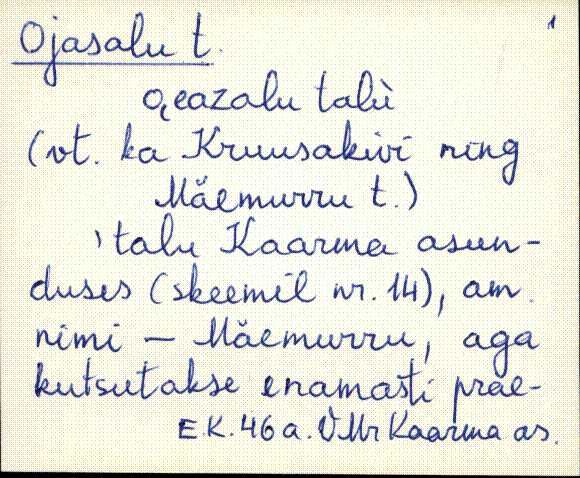 1
Ojasalu t.
o̜eazalu talù
(vt. ka Kruusakivi ning
Mäemurru t.)
'talu Kaarma asun-
duses (skeemil nr. 14), am.
nimi — Mäemurru, aga
kutsutakse enamasti prae-
E.K. 46 a. VMr Kaarma as.